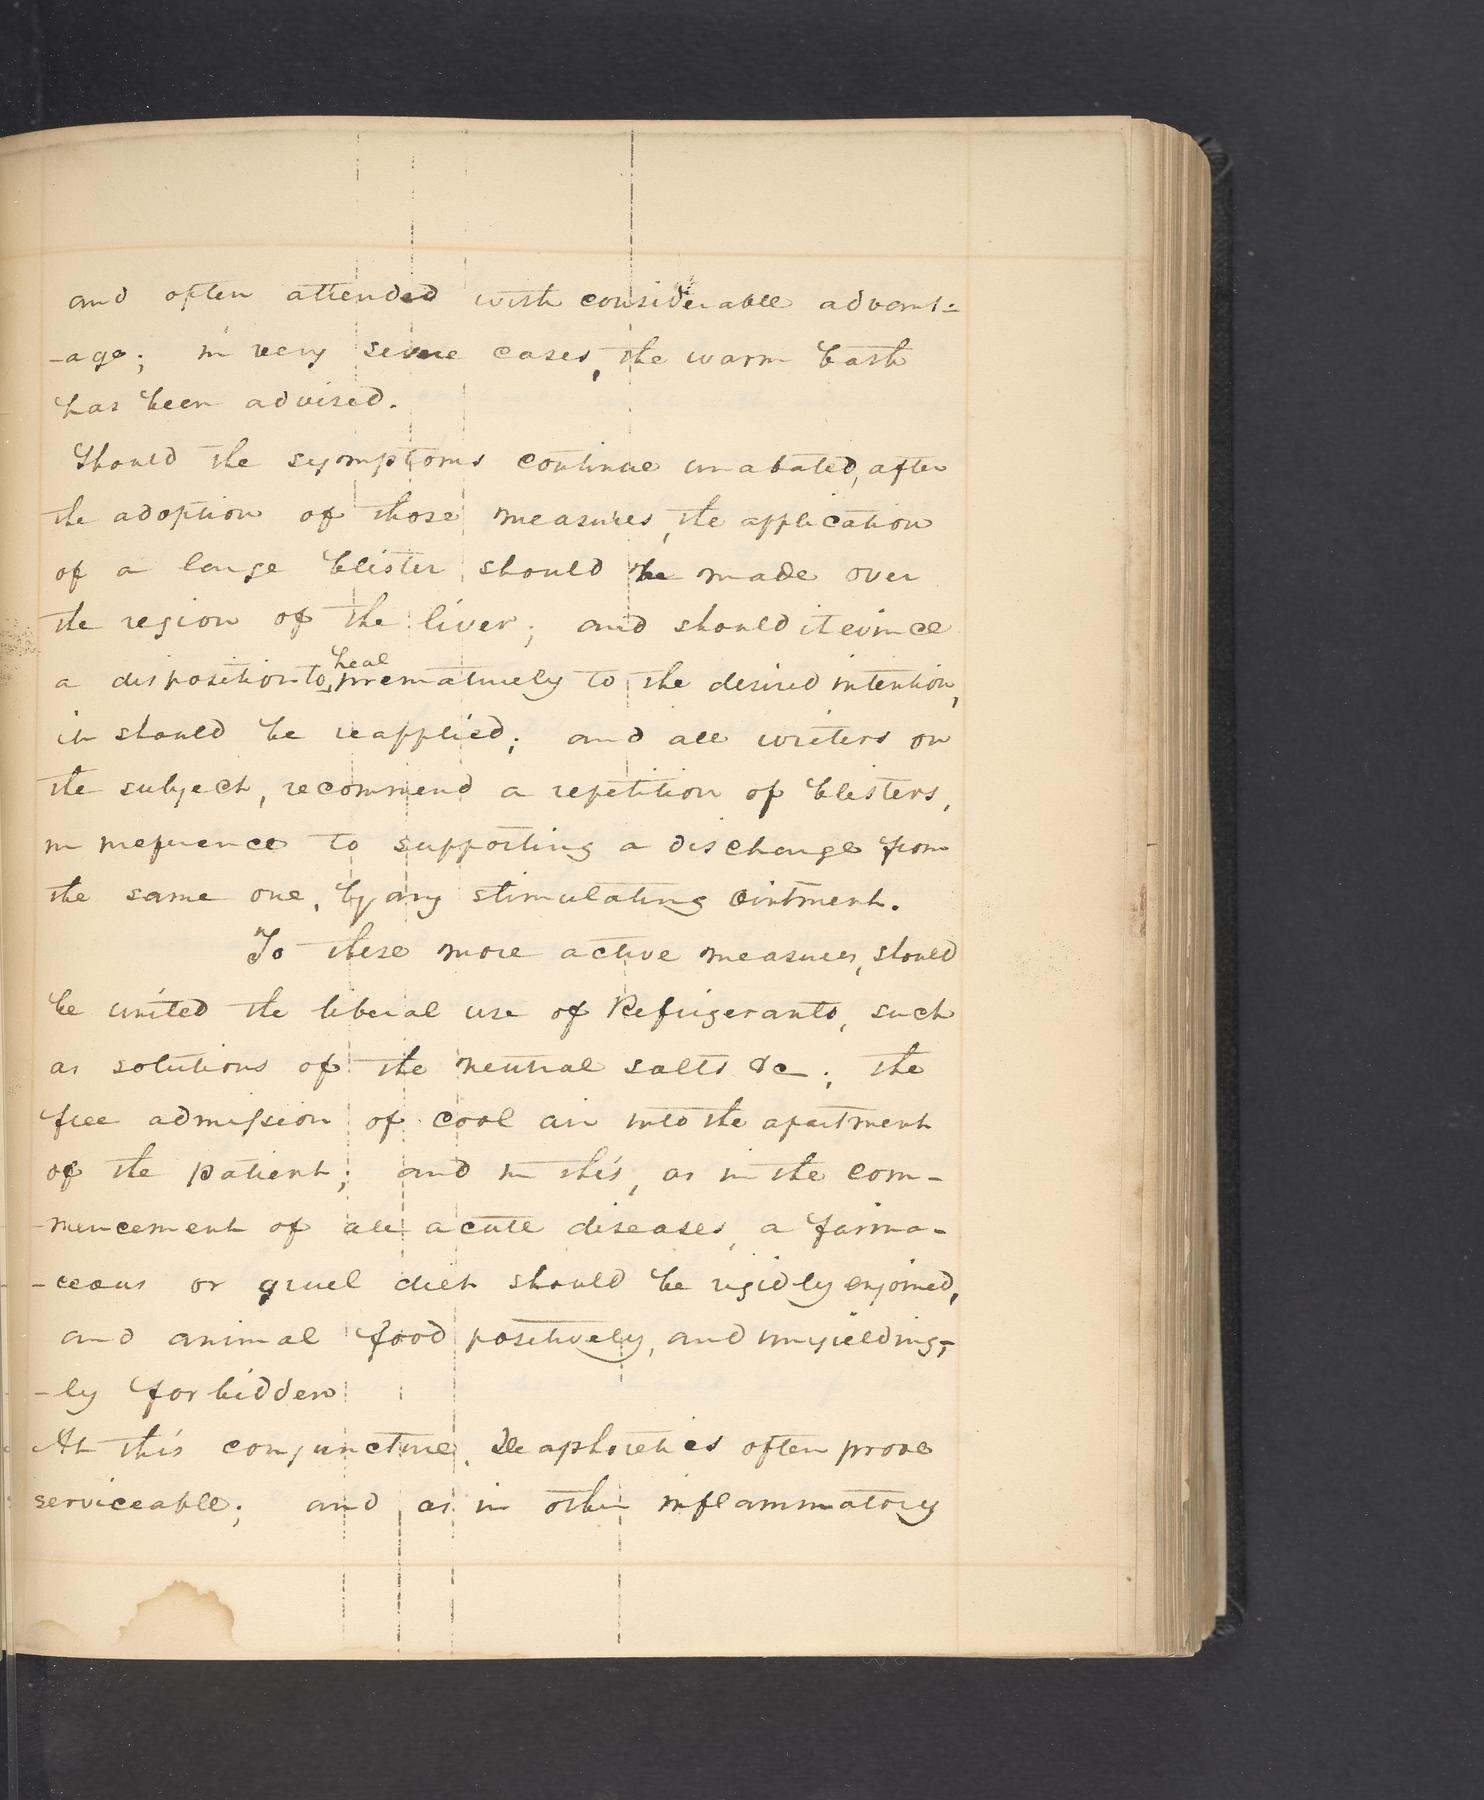 and often attended with considerable advant=
-age; in very severe cases, the warm bath
has been advised.
Should the symptoms continue unabated, after
the adoption of those measures, the application
of a large blister should be made over
the region of the liver; and should it evince
a disposition to heal prematurely to the desired intention,
it should be reapplied; and all writers on
the subject, recommend a repetition of blisters,
in preference to supporting a discharge from
the same one, by any stimulating ointment.
To these more active measures, should
be united the liberal use of Refrigerants, such
as solutions of the neutral salts &c; the
free admission of cool air into the apartment
of the patient; and in this, as in the com-
-mencement of all acute diseases, a farina-
-ceous or gruel diet should be rigidly enjoined,
and animal food positively, and unyielding-
-ly forbidden
At this conjuncture, Deaphoretics often prove
serviceable; and as in other inflammatory